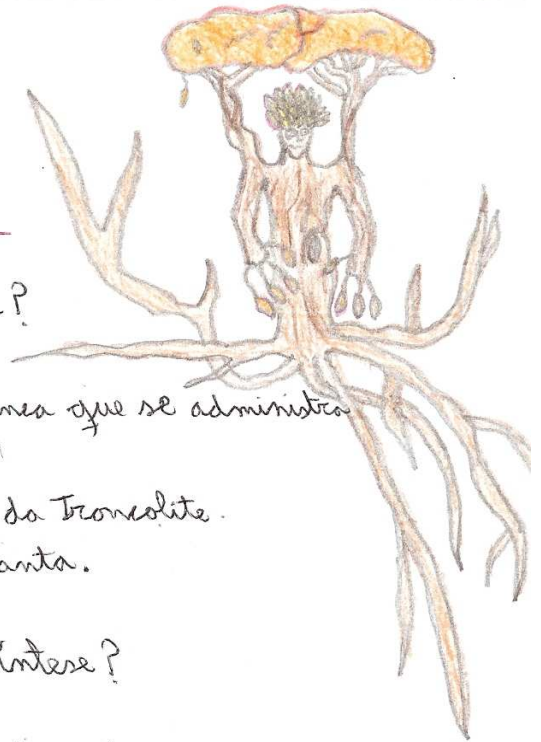 ?
que se administra
da Troncolite.
anta.
íntese?